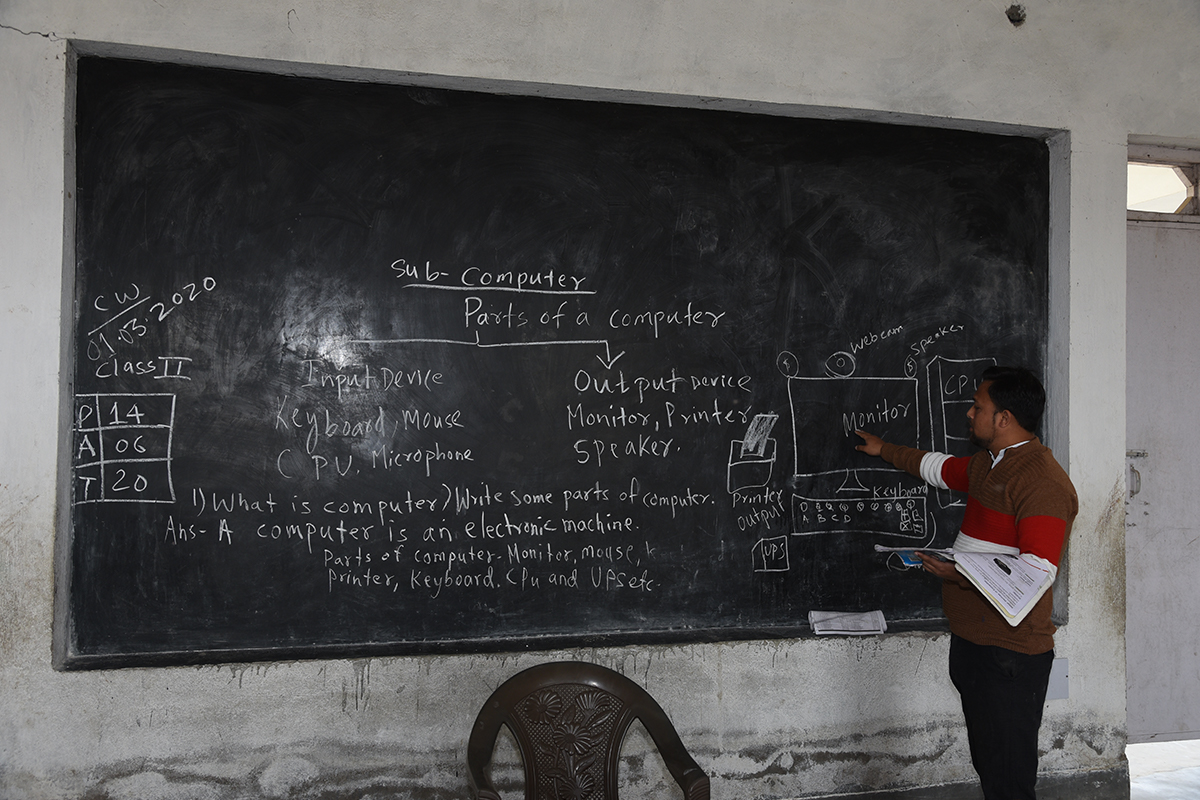 CW
01.03.2020
Class II
P 14
A 06
T 20
Sub- Computer
Parts of a computer
Input Device
Keyboard, Mouse
CPU. Microphone
Output Device
Monitor, Printer
Speaker.
1) What is computer) Write some parts of computer.
Ans- A computer is an electronic machine.
Parts of computer- Monitor, mouse, k
printer, Keyboard. CPu and UPS etc.
Webcam
Speaker
S
S
Monitor
CPU
Printer
Output
Keyboard
A B C D
UPS